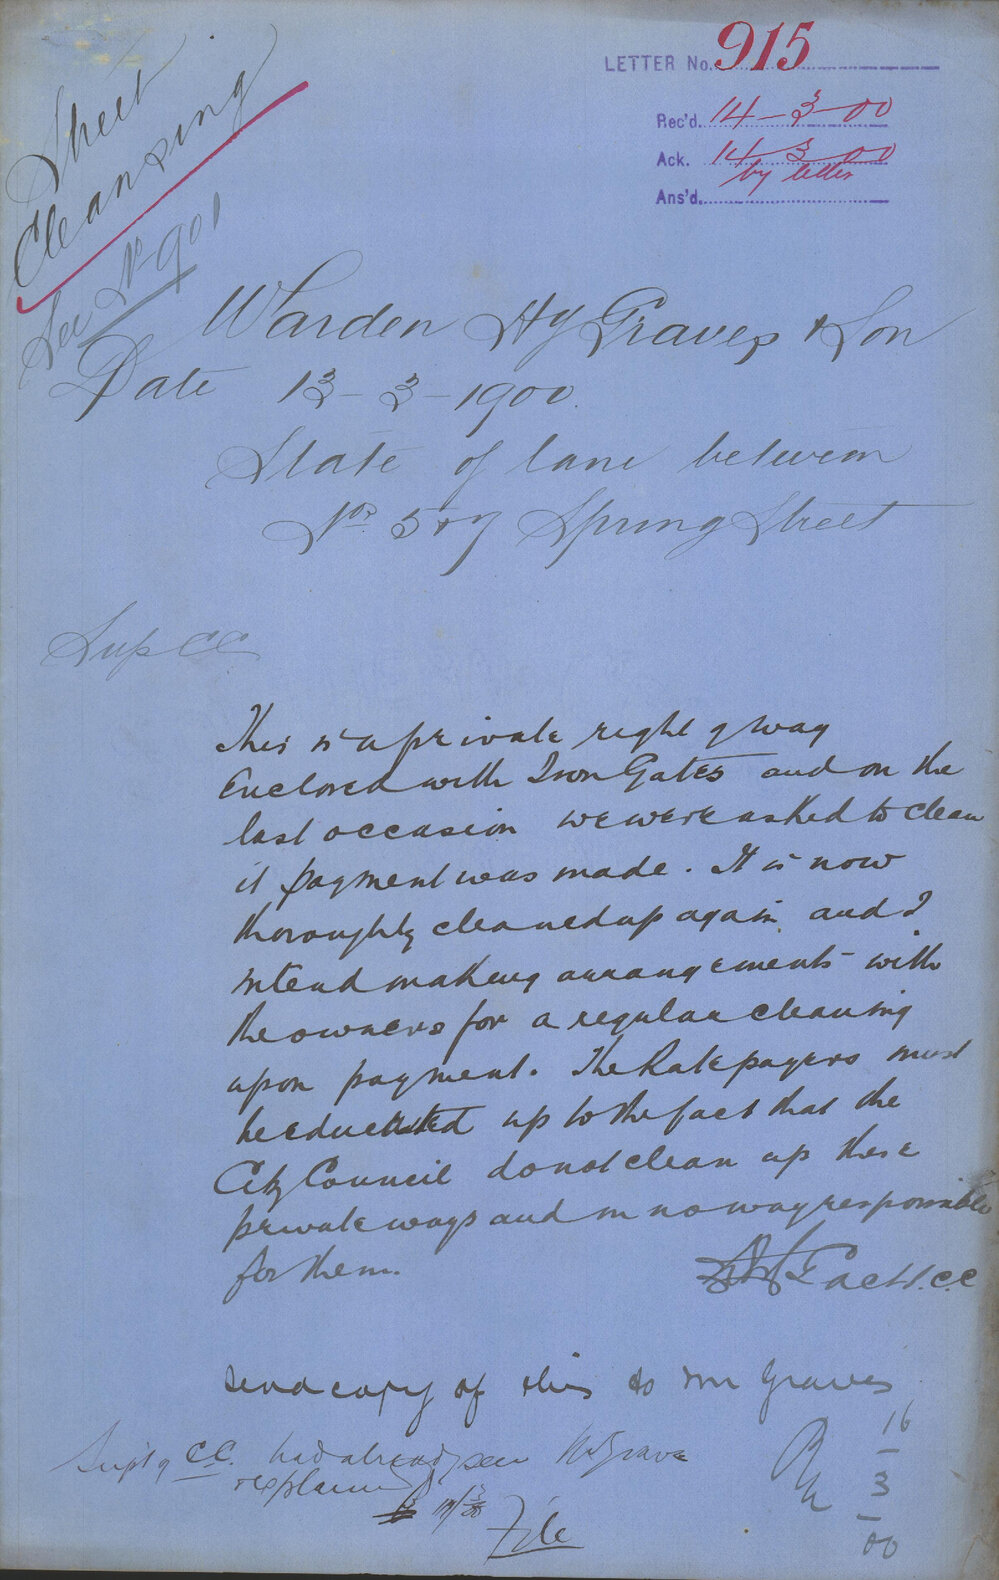 Street
Cleansing
See No 901
LETTER No. 915
Rec'd. 14-3-00
Ack. 14 3 00
by letter
Ans'd.
Warden Hy Graves & Son
Date 13-3-1900
State of lane between
Nos 5 & 7 Spring Street
Sup CC
This is a private right of way
Enclosed with Iron Gates and on the
last occasion we were asked to clean
it payment was made. It is now
thoroughly cleaned up again and I
intend making arrangements with
the owners for a regular cleaning
upon payment. The Ratepayers must
be educated up to the fact that the
City Council do not clean up these
private ways and in no way responsible
for them.
C.C
send copy of this to Mr Graves
16
3
00
Supt of C.C. had already seen Mr Graves
& explained
File